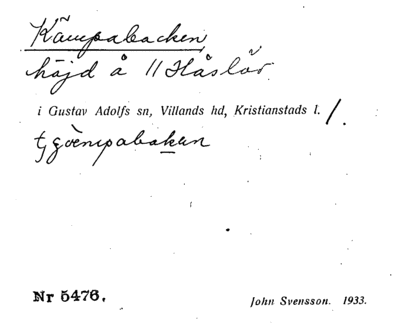 Kämpabacken
höjd å 11 Håslöv
i Gustav Adolfs sn, Villands hd, Kristianstads l.
Nr 5476.
John Svensson. 1933.